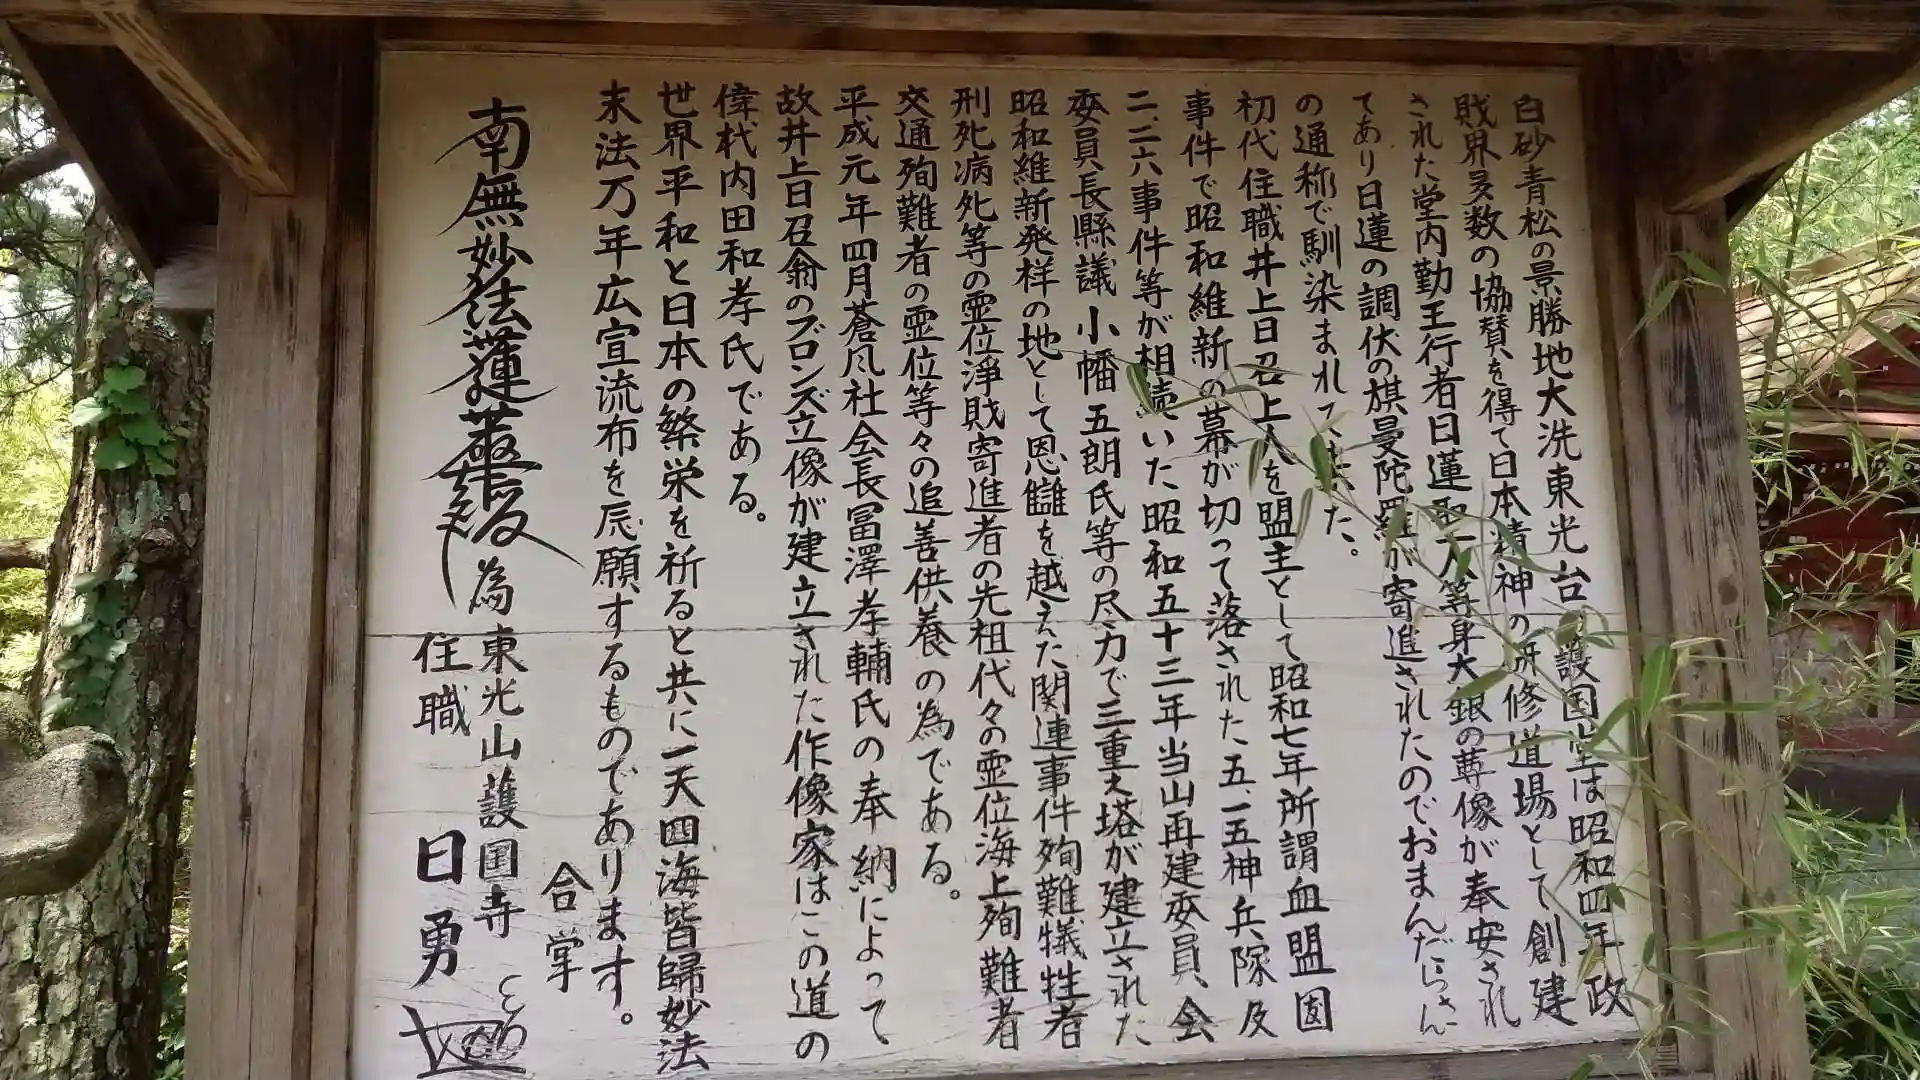 白砂青松の景勝地大洗東光台護国堂は昭和四年政
財界多数の協賛を得て日本精神の研修道場として創建
された堂内勤王行者日蓮聖人等身大銀の尊像が奉安され
てあり日蓮の調伏の棋曼陀羅が寄進されたのでおまんだらさん
の通称で馴染まれてきた。
初代住職井上日召上人を盟主として昭和七年所謂血盟団
事件で昭和維新の幕が切って落された五、一五神兵隊及
二、二六事件等が相続いた昭和五十三年当山再建委員会
委員長縣議小幡五朗氏等の尽力で三重之塔が建立された
昭和維新発祥の地として恩讎を越えた関連事件殉難犠牲者
刑死病死等の霊位淨財寄進者の先祖代々の霊位海上殉難者
交通殉難者の霊位等々の追善供養の為である。
平成元年四月蒼風社会長冨澤孝輔氏の奉納によって
故井上日召翁のブロンズ立像が建立された作像家はこの道の
偉材内田和孝氏である。
世界平和と日本の繁栄を祈ると共に一天四海皆歸妙法
末法万年広宣流布を祈願するものであります。
合掌
南無妙法蓮華経
為東光山護国寺
住職 日勇